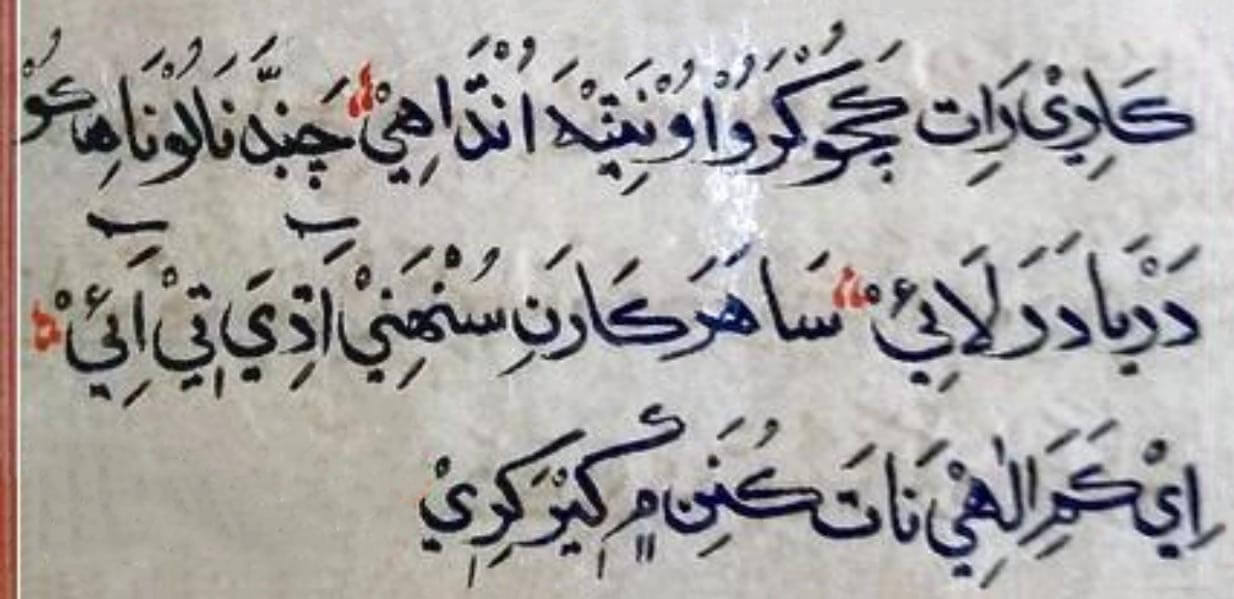 كَارِيْ رَات كَچُو كَرُواُ وُنَٽِيْهَ اُنْڌَاهِيْ، چَنڊَّ نَالُو نَاهِ كُوْ
دَرْيَا دَرَ لَائِيْ، سَاهَرَ كَارَنِ سُنْهَنِيْ آڌِيَ ٿِيْ آئِيْ،
اِيْ كَمَ اِلٰهِيْ نَاتَ كُنَنِ ۾ كِيْرَ كَرِيْ